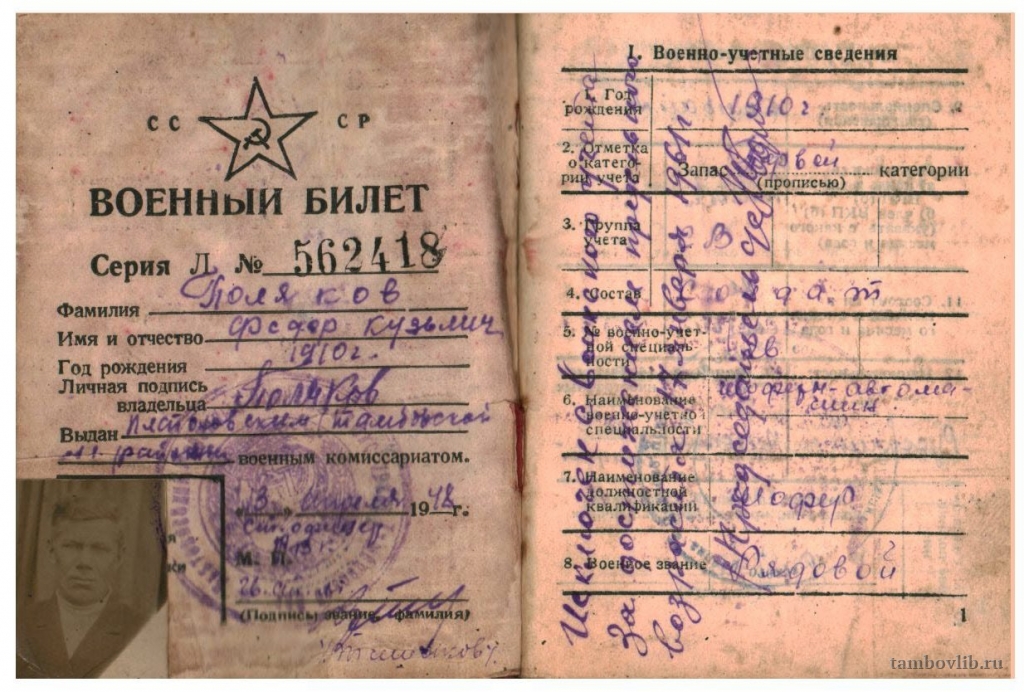 СС СР
ВОЕННЫЙ БИЛЕТ
Серия Л № 562418
Фамилия Поляков
Имя и отчество Федор Кузьмич
Год рождения 1910 г.
Личная подпись
владельца Поляков
Выдан Платоновским Тамбовской
районным военным комиссариатом.
13 апреля 1948 г.
М. П.
(Подпись, звание, фамилия)
I. Военно-учетные сведения
1. Год
рождения 1910 г
2. Отметка
о катего-
рии учета Запас первой категории
(прописью)
3. Группа
учета В
4. Состав Солдат
5. № военно-учет-
ной специаль-
ности
6. Наименование
военно-учетной
специальности шофер автома-
шин
7. Наименование
должностной
квалификации шофер
8. Военное звание Рядовой
Исключен с воинского учета
За достижением предельного
возраста 17 января 1961 г.
1
tambovlib.ru